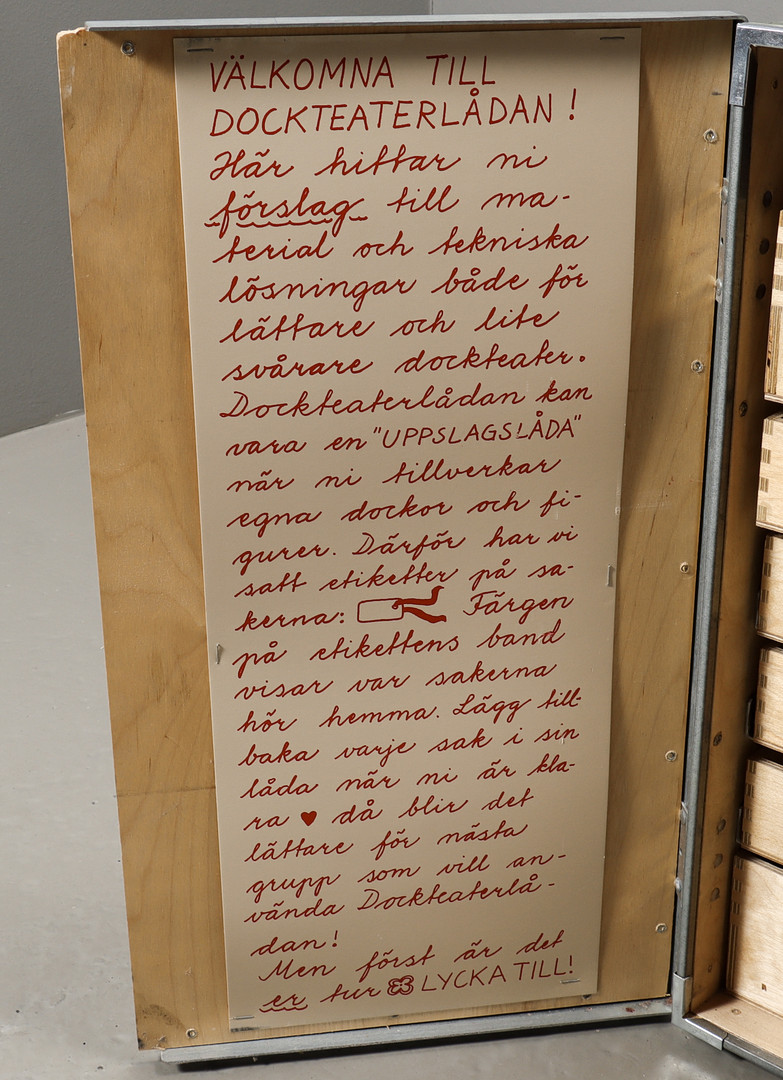 VÄLKOMNA TILL
DOCKTEATERLÅDAN!
Här hittar ni
förslag till ma-
terial och tekniska
lösningar både för
lättare och lite
svårare dockteater.
Dockteaterlådan kan
vara en "UPPSLAGSLÅDA"
när ni tillverkar
egna dockor och fi-
gurer. Därför har vi
satt etiketter på sa-
kerna: Färgen
på etikettens band
visar var sakerna
hör hemma. Lägg till-
baka varje sak i sin
låda när ni är kla-
ra ♥ då blir det
lättare för nästa
grupp som vill an-
vända Dockteaterlå-
dan!
Men först är det
er tur LYCKA TILL!